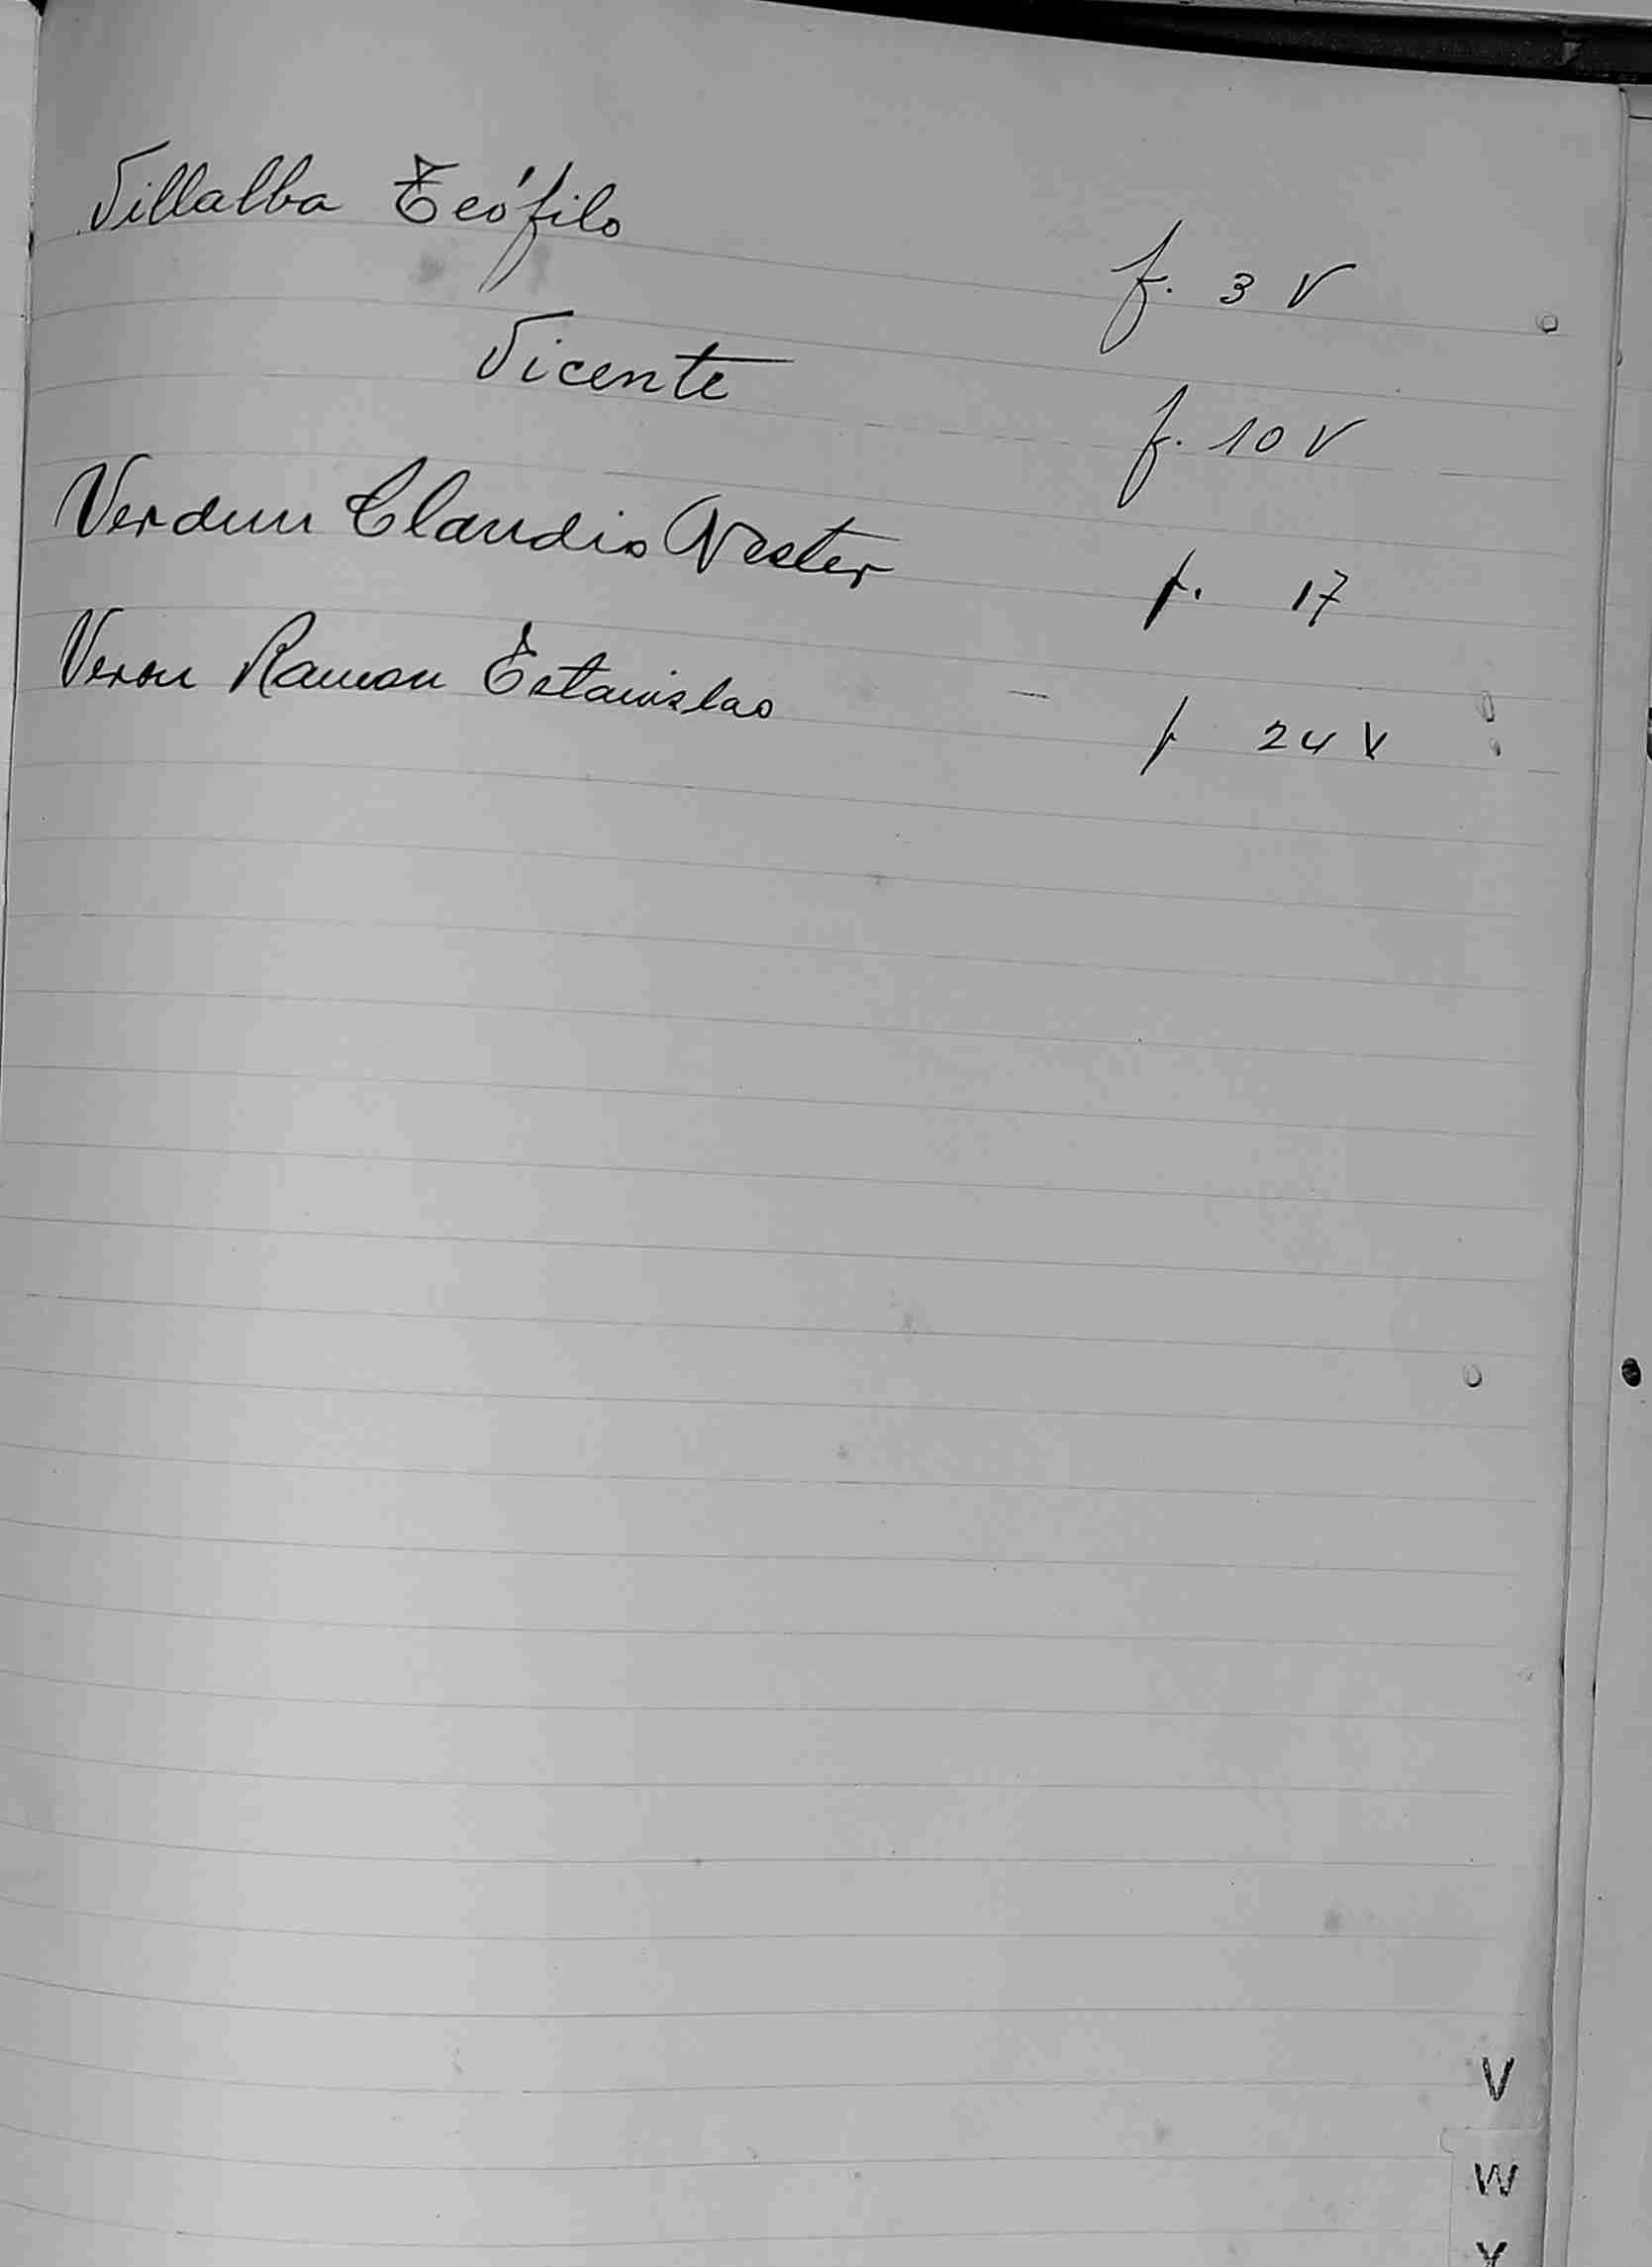 Villalba Teófilo f. 3 V
Vicente f. 10 V
Verdun Claudio Nester f. 17
Veron Ramon Estanislao - f 24 V
V
W
X